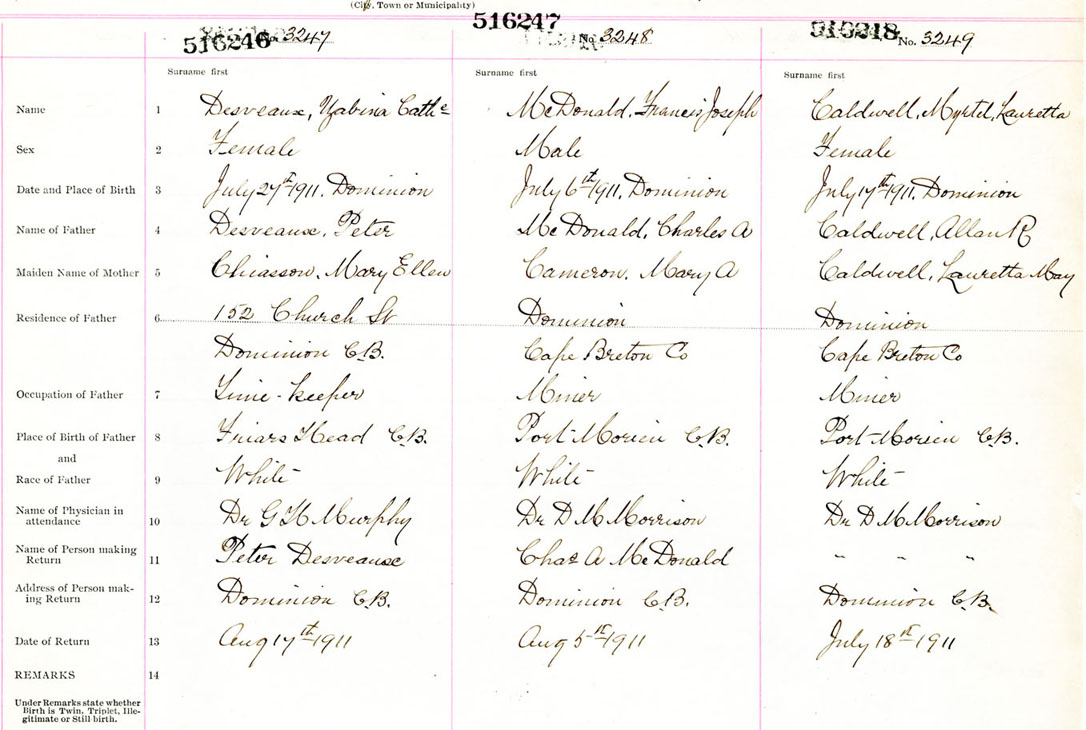 (City, Town or Municipality)
516246 No. 3247 516247 No. 3248 516248 No. 3249
Surname first Surname first Surname first
Name 1 Desveaux, Zabina Cathe McDonald, Francis Joseph Caldwell, Myrtel, Lauretta
Sex 2 Female Male Female
Date and Place of Birth 3 July 27th 1911. Dominion July 6th 1911, Dominion July 17th 1911, Dominion
Name of Father 4 Desveaux, Peter McDonald, Charles A Caldwell, Allan R
Maiden Name of Mother 5 Chiasson, Mary Ellen Cameron, Mary A Caldwell, Lauretta May
Residence of Father 6 152 Church St Dominion Dominion
Dominion C.B. Cape Breton Co Cape Breton Co
Occupation of Father 7 Time-keeper Miner Miner
Place of Birth of Father 8 Friars Head C.B. Port-Morien C.B. Port-Morien C.B.
and
Race of Father 9 White White White
Name of Physician in
attendance 10 Dr G H Murphy Dr D M Morrison Dr D M Morrison
Name of Person making
Return 11 Peter Desveaux Chas A McDonald " " "
Address of Person mak-
ing Return 12 Dominion C.B. Dominion C.B. Dominion C.B.
Date of Return 13 Aug 17th 1911 Aug 5th 1911 July 18th 1911
REMARKS 14
Under Remarks state whether
Birth is Twin, Triplet, Ille-
gitimate or Still birth.